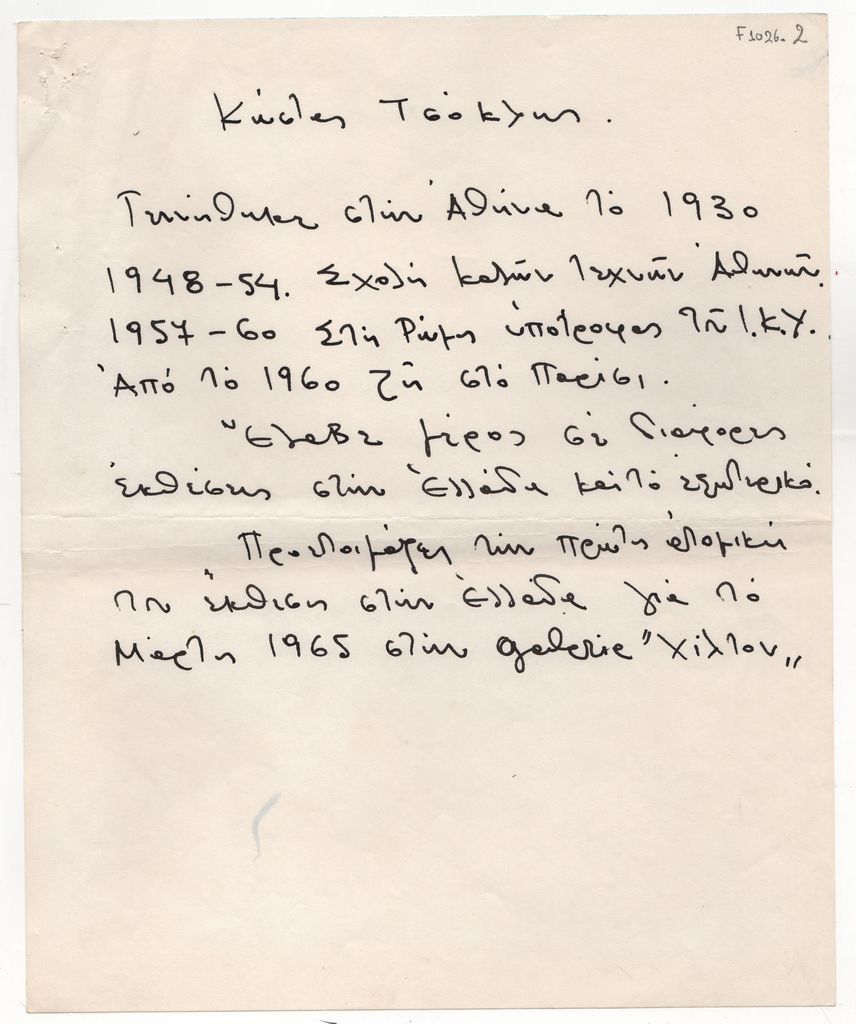 F1026. 2
Κώστας Τσόκλης.
Γεννήθηκε στην Ἀθήνα τὸ 1930
1948-54. Σχολὴ καλῶν τεχνῶν Ἀθηνῶν.
1957-60 Στὴ Ρώμη ὑπότροφος τοῦ Ι.Κ.Υ.
Ἀπό τὸ 1960 ζῆ στὸ Παρίσι.
Ἔλαβε μέρος σὲ διάφορες
ἐκθέσεις στὴν Ἑλλάδα καὶ τὸ ἐξωτερικό.
Προετοιμάζει τὴν πρώτη ἀτομική
του ἔκθεση στὴν Ἑλλάδα γιὰ τὸ
Μάρτη 1965 στὴν galerie "Χίλτον„